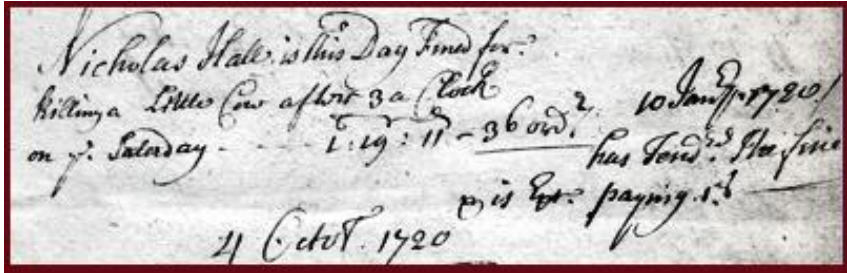 Nicholas Hall is this Day Fined for
killing a Little Cow after 3 a Clock
on yͤ Saterday - - - - 1:19:11 - 36 ordʳ
10 Janʳʸ 1720/
has Tendʳᵈ the fine
& is Exᵗ paying 1ˢ
4 Octoʳ. 1720